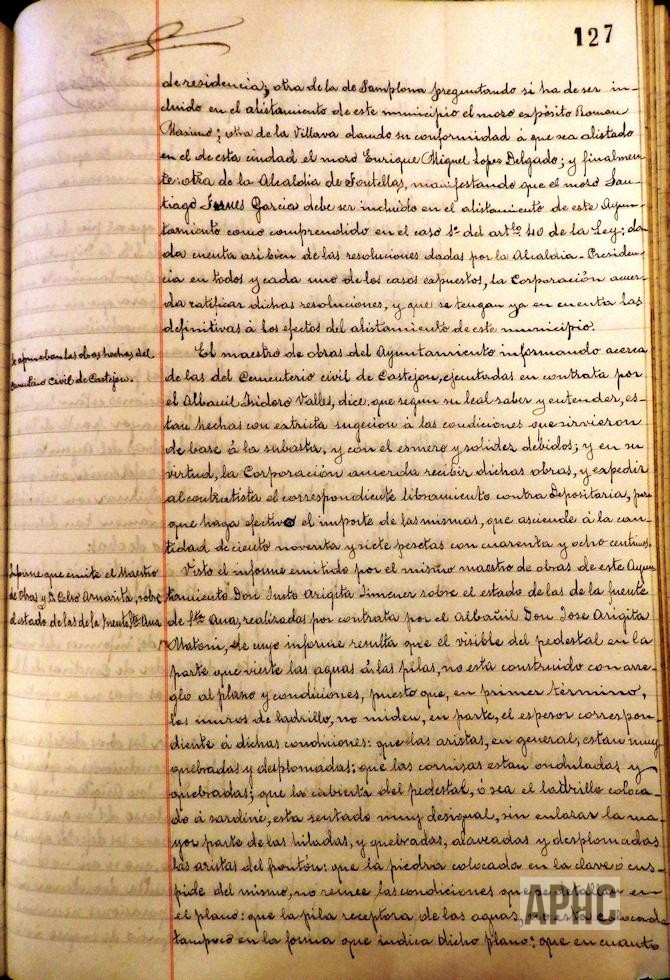 127
de residencia; otra de la de Pamplona preguntando si ha de ser in-
cluido en el alistamiento de este municipio el mozo expósito Roman
Maximo; otra de la Villava dando su conformidad á que sea alistado
en el de esta ciudad el mozo Enrique Miguel Lopes Delgado; y finalmen-
te: otra de la Alcaldia de Fontellas, manifestando que el mozo San-
tiago Garcia debe ser incluido en el alistamiento de este Ayun-
tamiento como comprendido en el caso 5º del artlo 40 de la Ley; da-
da cuenta asi bien de las resoluciones dadas por la Alcaldia-Presiden-
cia en todos y cada uno de los casos expuestos, la Corporación acuer-
da ratificar dichas resoluciones, y que se tengan ya en cuenta las
definitivas á los efectos del alistamiento de este municipio.
Se aprueban las obras hechas del
Cementerio Civil de Castejon.
El maestro de obras del Ayuntamiento informando acerca
de las del Cementerio civil de Castejon, ejecutadas en contrata por
el Albañil Isidoro Valles, dice: que segun su leal saber y entender, es-
tan hechas con extricta sugecion á las condiciones que sirvieron
de base á la subasta, y con el esmero y solidez debidos; y en su
virtud, la Corporación acuerda recibir dichas obras, y expedir
al contratista el correspondiente libramiento contra Depositaria, para
que haga efectivo el importe de las mismas, que asciende á la can-
tidad de ciento noventa y siete pesetas con cuarenta y ocho centimos.
Informe que emite el Maestro
de Obras y D. Celso Amarita, sobre
el estado de las de la fuente Sta Ana
Visto el informe emitido por el mismo maestro de obras de este Ayun-
tamiento Don Justo Arigita Jimenez sobre el estado de las de la fuente
de Sta Ana, realizadas por contrata por el Albañil Don Jose Arigita
Matoni, de cuyo informe resulta que el visible del pedestal en la
parte que vierte las aguas á las pilas, no está construido con arre-
glo al plano y condiciones, puesto que, en primer término,
los muros de ladrillo, no miden, en parte, el espesor correspon-
diente á dichas condiciones: que las aristas, en general, estan muy
quebradas y desplomadas; que las cornisas estan onduladas y
quebradas; que la cubierta del pedestal, ó sea el ladrillo coloca-
do á sardinel, esta sentado muy desigual, sin enlazar la ma-
yor parte de las hiladas, y quebradas, alaveadas y desplomadas
las aristas del frontón: que la piedra colocada en la clave ó cus-
pide del mismo, no reune las condiciones que se detallan en
el plano: que la pila receptora de las aguas, no está colocada
tampoco en la forma que indica dicho plano: que en cuanto
APHC